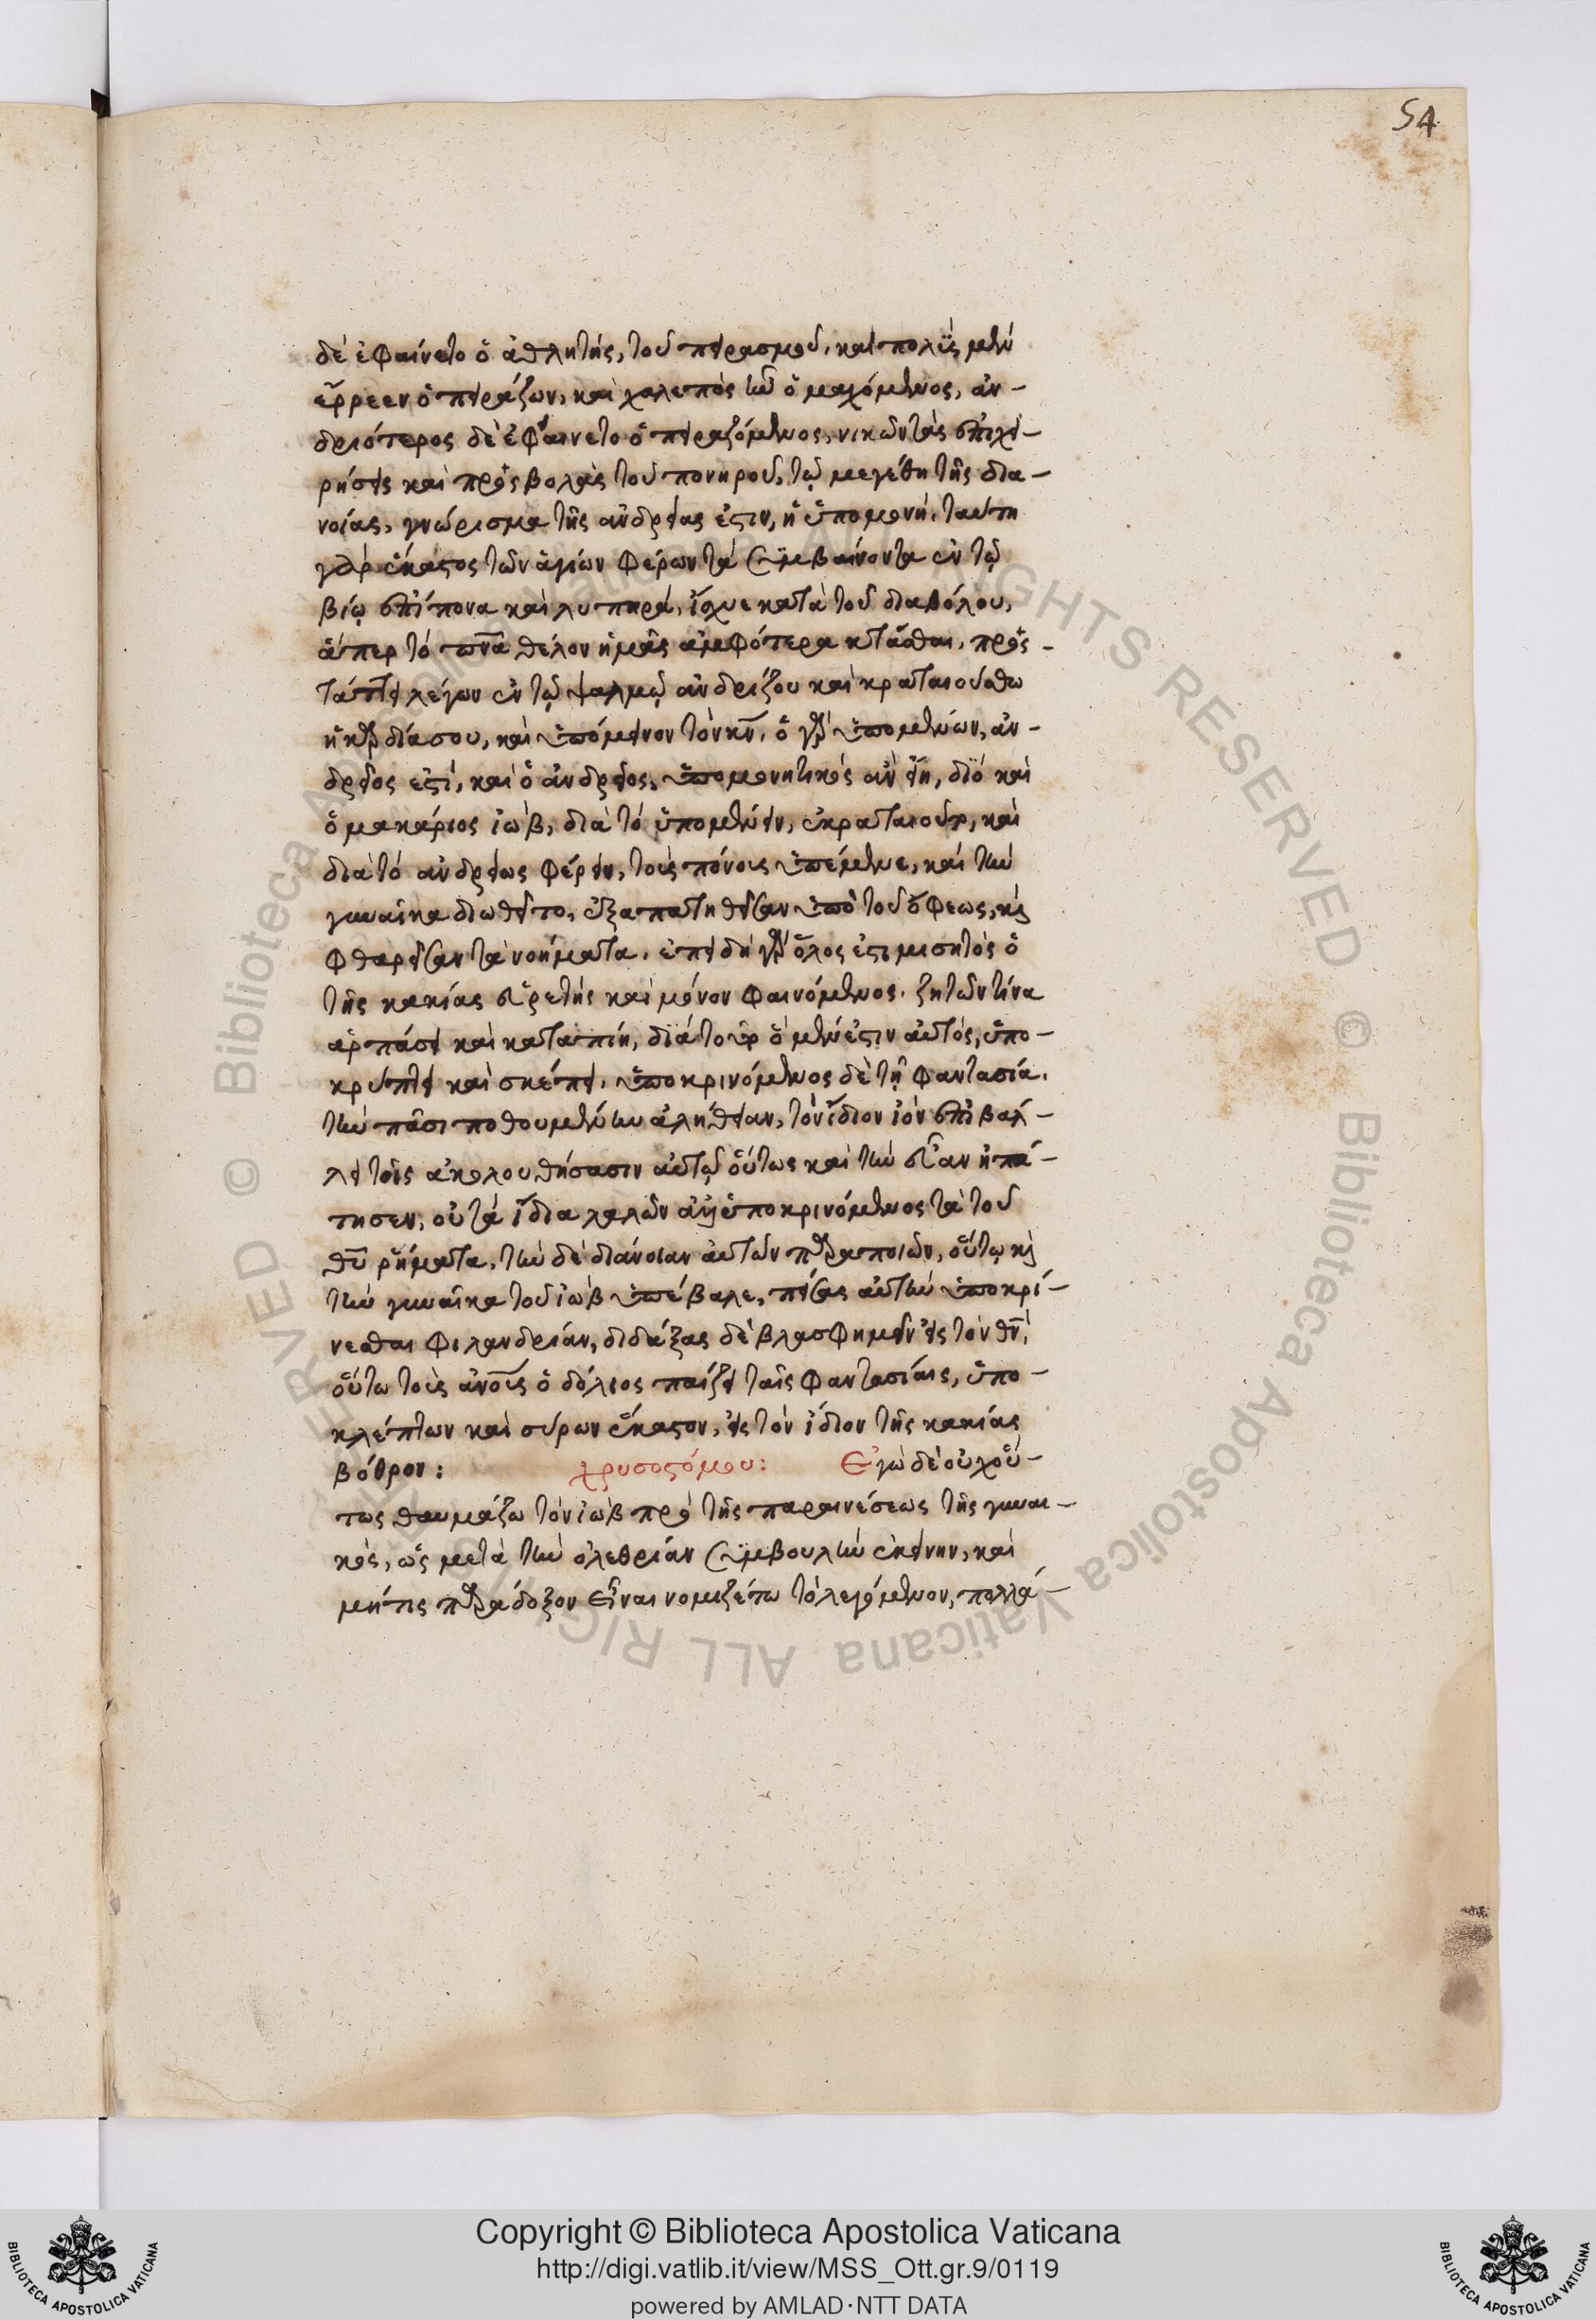 54
δὲ ἐφαίνετο ὁ ἀθλητής, τοῦ πειρασμοῦ. καὶ πολὺς μὲν
ἔρρεεν ὁ πειράζων, καὶ χαλεπὸς ἦν ὁ μαχόμενος, ἀν-
δριότερος δὲ ἐφαίνετο ὁ πειραζόμενος, νικῶν τὰς ἐπιχει-
ρήσεις καὶ προσβολὰς τοῦ πονηροῦ, τῷ μεγέθη τῆς δια-
νοίας, γνώρισμα τῆς ἀνδρείας ἐστιν, ἡ ὑπομονή. ταύτη
γὰρ ἕκαστος τῶν ἁγίων φέρων τὰ συμβαίνοντα ἐν τῷ
βίῳ ἐπίπονα καὶ λυπηρά, ἴσχυε κατὰ τοῦ διαβόλου,
ἅπερ τό πνα θέλον ἡμᾶς ἀμφότερα κτᾶσθαι, προσ-
τάττει λέγων ἐν τῷ ψαλμῷ ἀνδρίζου καὶ κραταιούσθω
ἡ καρδία σου, καὶ ὑπόμεινον τὸν κν. ὁ γὰρ ὑπομένων, ἀν-
δρεῖος ἐστί, καὶ ὁ ἀνδρεῖος, ὑπομονητικός ἂν εἴη, διὸ καὶ
ὁ μακάριος ἰὼβ, διὰ τὸ ὑπομένειν, ἐκραταιοῦτο, καὶ
διὰ τὸ ἀνδρείως φέρειν, τοὺς πόνους ὑπέμεινε, καὶ τὴν
γυναῖκα διωθεῖτο, ἐξαπατηθεῖσαν ὑπὸ τοῦ ὄφεως, καὶ
φθαρεῖσαν τὰ νοήματα. ἐπειδὴ γὰρ ὅλος ἐστι μισητὸς ὁ
τῆς κακίας εὑρετής καὶ μόνον φαινόμενος. ζητῶν τίνα
ἁρπάσει καὶ καταπίη, διὰ τοῦτο ὃ μέν ἐστιν αὐτός, ὑπο-
κρύπτει καὶ σκέπει. ὑποκρινόμενος δὲ τῇ φαντασία.
τὴν πᾶσι ποθουμένην ἀλήθειαν, τὸν ἴδιον ἰὸν ἐπιβάλ-
λει τοῖς ἀκολουθήσασιν αὐτῷ οὕτως καὶ τὴν εὔαν ἠπά-
τησεν, οὐ τὰ ἴδια λαλῶν ἀλλ' ὑποκρινόμενος τὰ τοῦ
θυ ῥήματα, τὴν δὲ διάνοιαν αὐτῶν παραποιῶν, οὕτω καὶ
τὴν γυναῖκα τοῦ ἰὼβ ὑπέβαλε, πείσας αὐτὴν ὑποκρί-
νεσθαι φιλανδρίαν, διδάξας δὲ βλασφημεῖν εἰς τὸν θν,
οὕτω τοὺς ἀνους ὁ δόλιος παίζει ταῖς φαντασίαις, ὑπο-
κλέπτων καὶ σύρων ἕκαστον, εἰς τὸν ἴδιον τῆς κακίας
βόθρον: χρυσοστόμου: Ἐγὼ δὲ οὐχ οὕ-
τως θαυμάζω τὸν ἰὼβ πρὸ τῆς παραινέσεως τῆς γυναι-
κός, ὡς μετὰ τὴν ὀλεθρίαν συμβουλὴν ἐκείνην, καὶ
μή τις παράδοξον εἶναι νομιζέτω τὸ λεγόμενον, πολλά-
Copyright © Biblioteca Apostolica Vaticana
http://digi.vatlib.it/view/MSS_Ott.gr.9/0119
powered by AMLAD·NTT DATA
BIBLIOTECA APOSTOLICA VATICANA
BIBLIOTECA APOSTOLICA VATICANA
© Biblioteca Apostolica Vaticana ALL RIGHTS RESERVED © Biblioteca Apostolica Vaticana ALL RIGHTS RESERVED